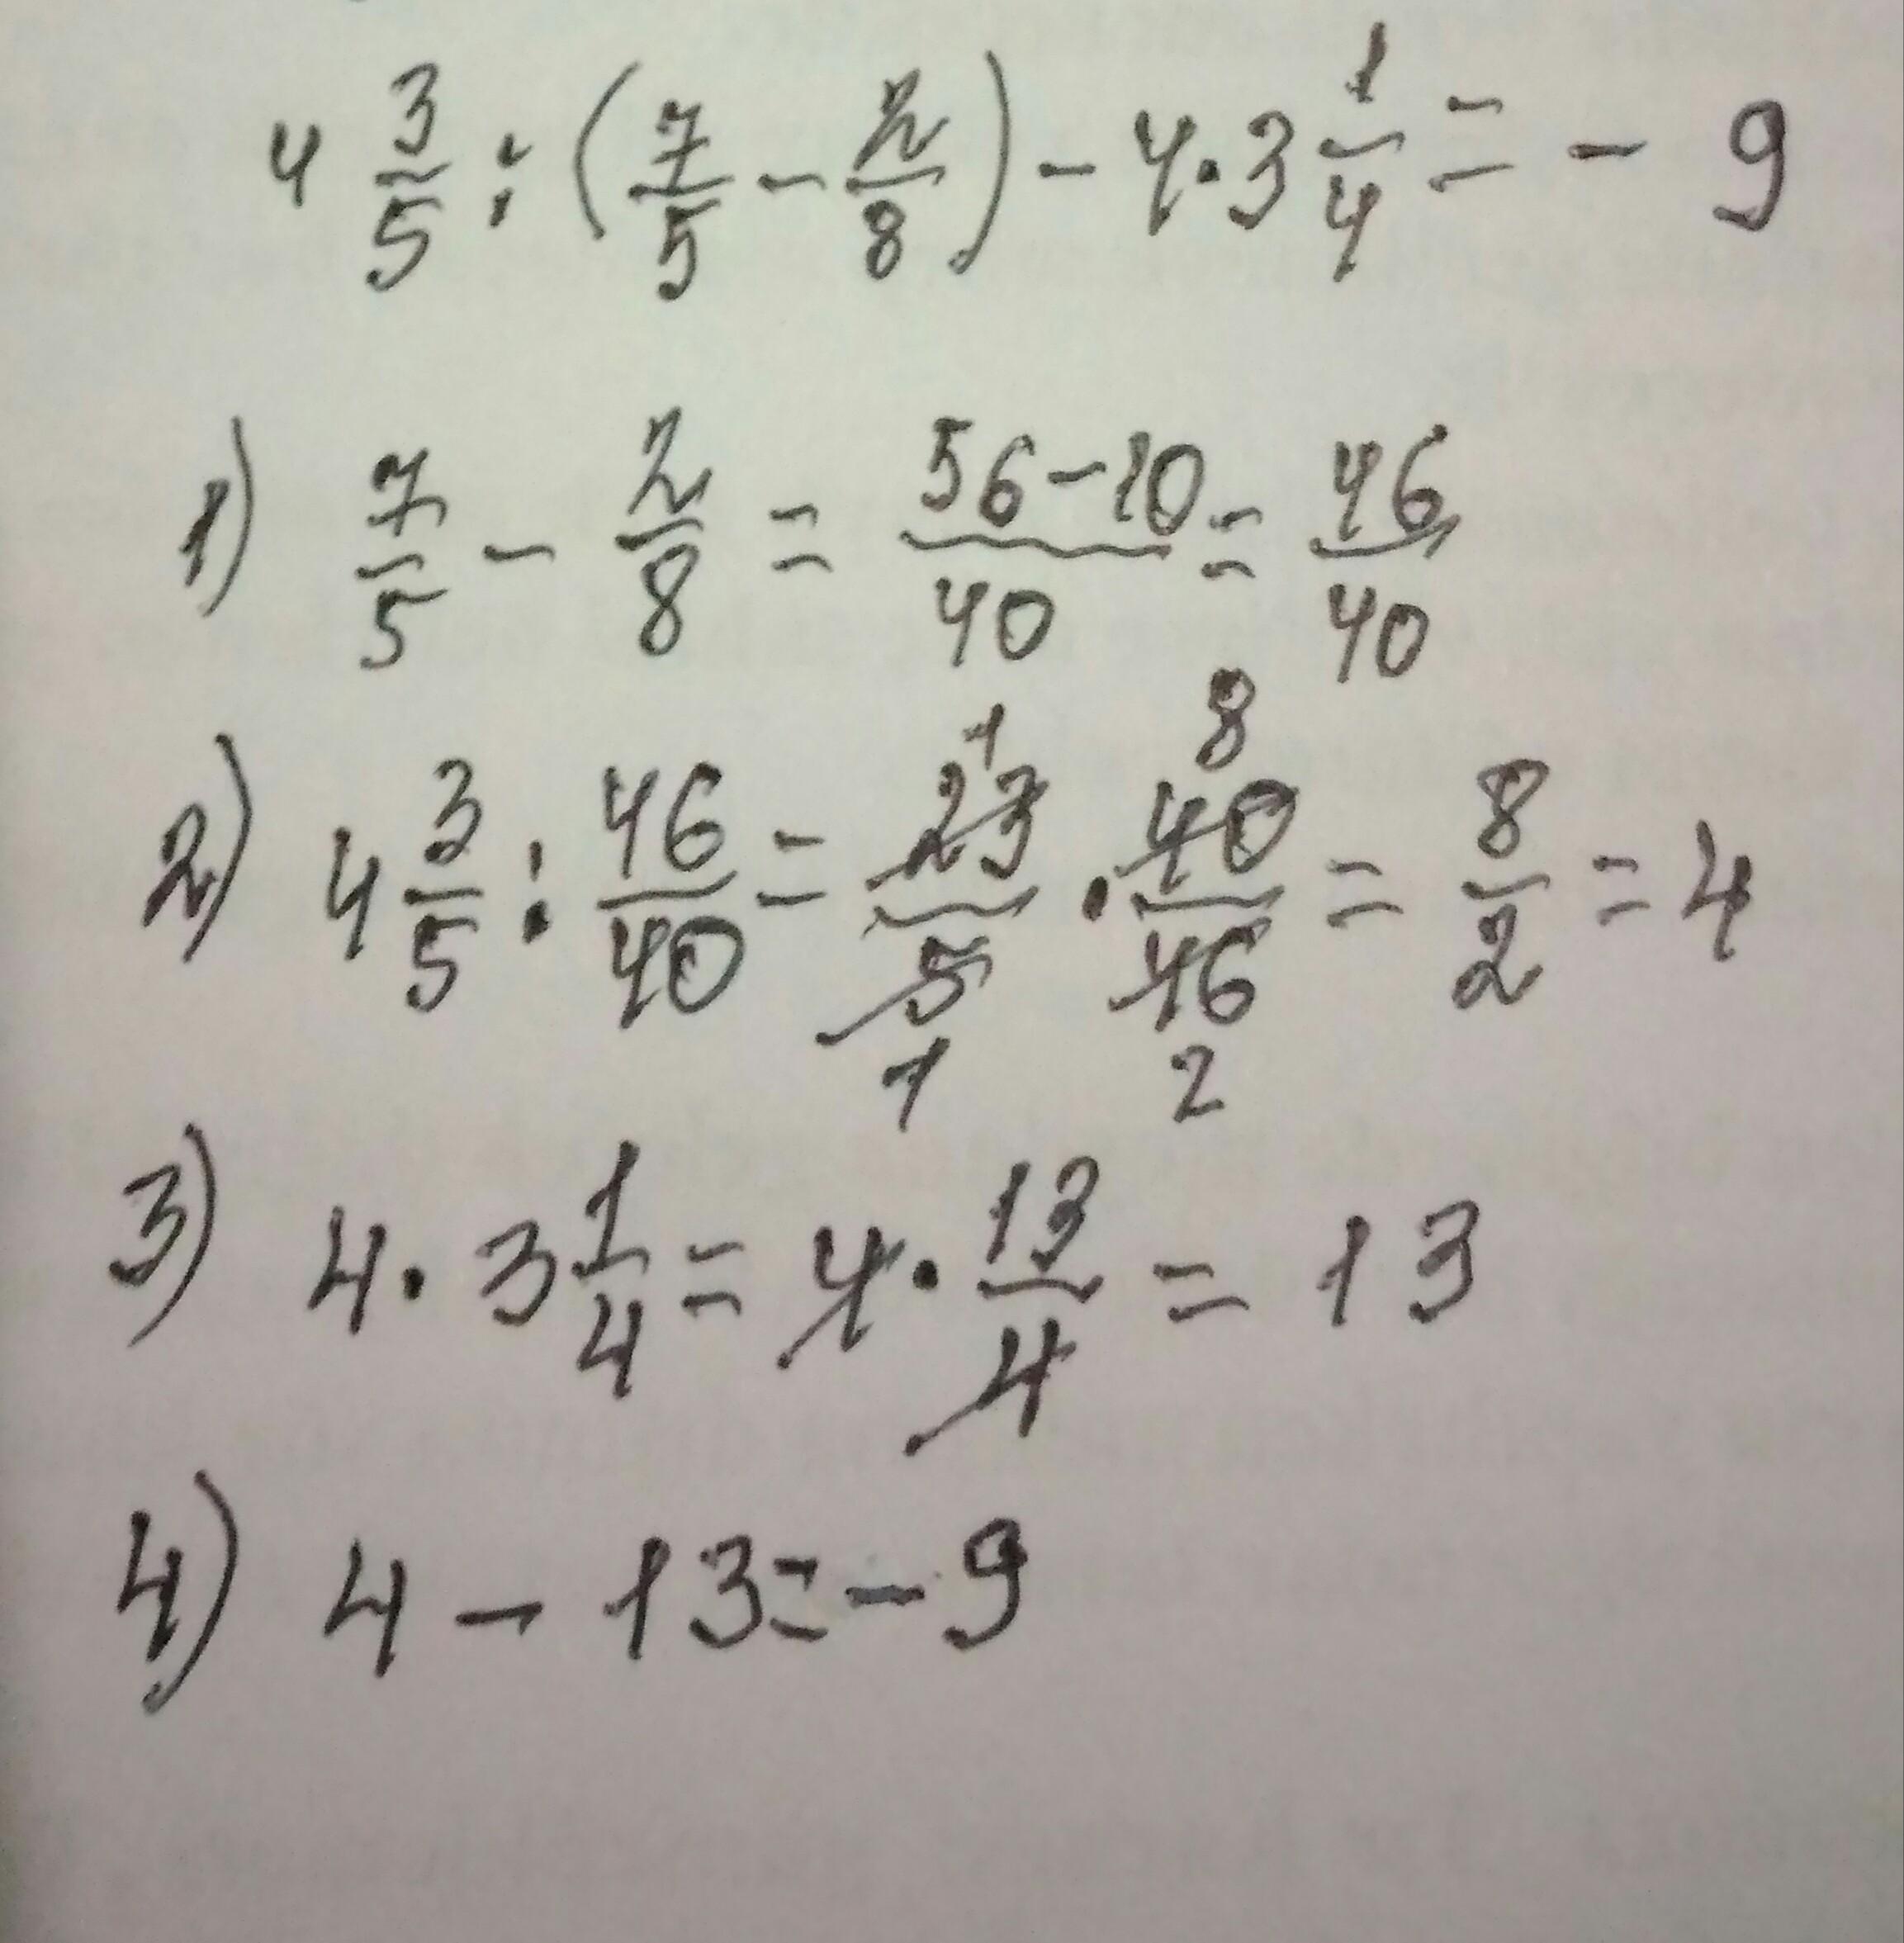 4 3/5 : (7/5 - 2/8) - 4 · 3 1/4 = - 9
1) 7/5 - 2/8 = (56 - 10)/40 = 46/40
2) 4 3/5 : 46/40 = 23/5 · 40/46 = 8/2 = 4
1 8
1 2
3) 4 · 3 1/4 = 4 · 13/4 = 13
4) 4 - 13 = - 9